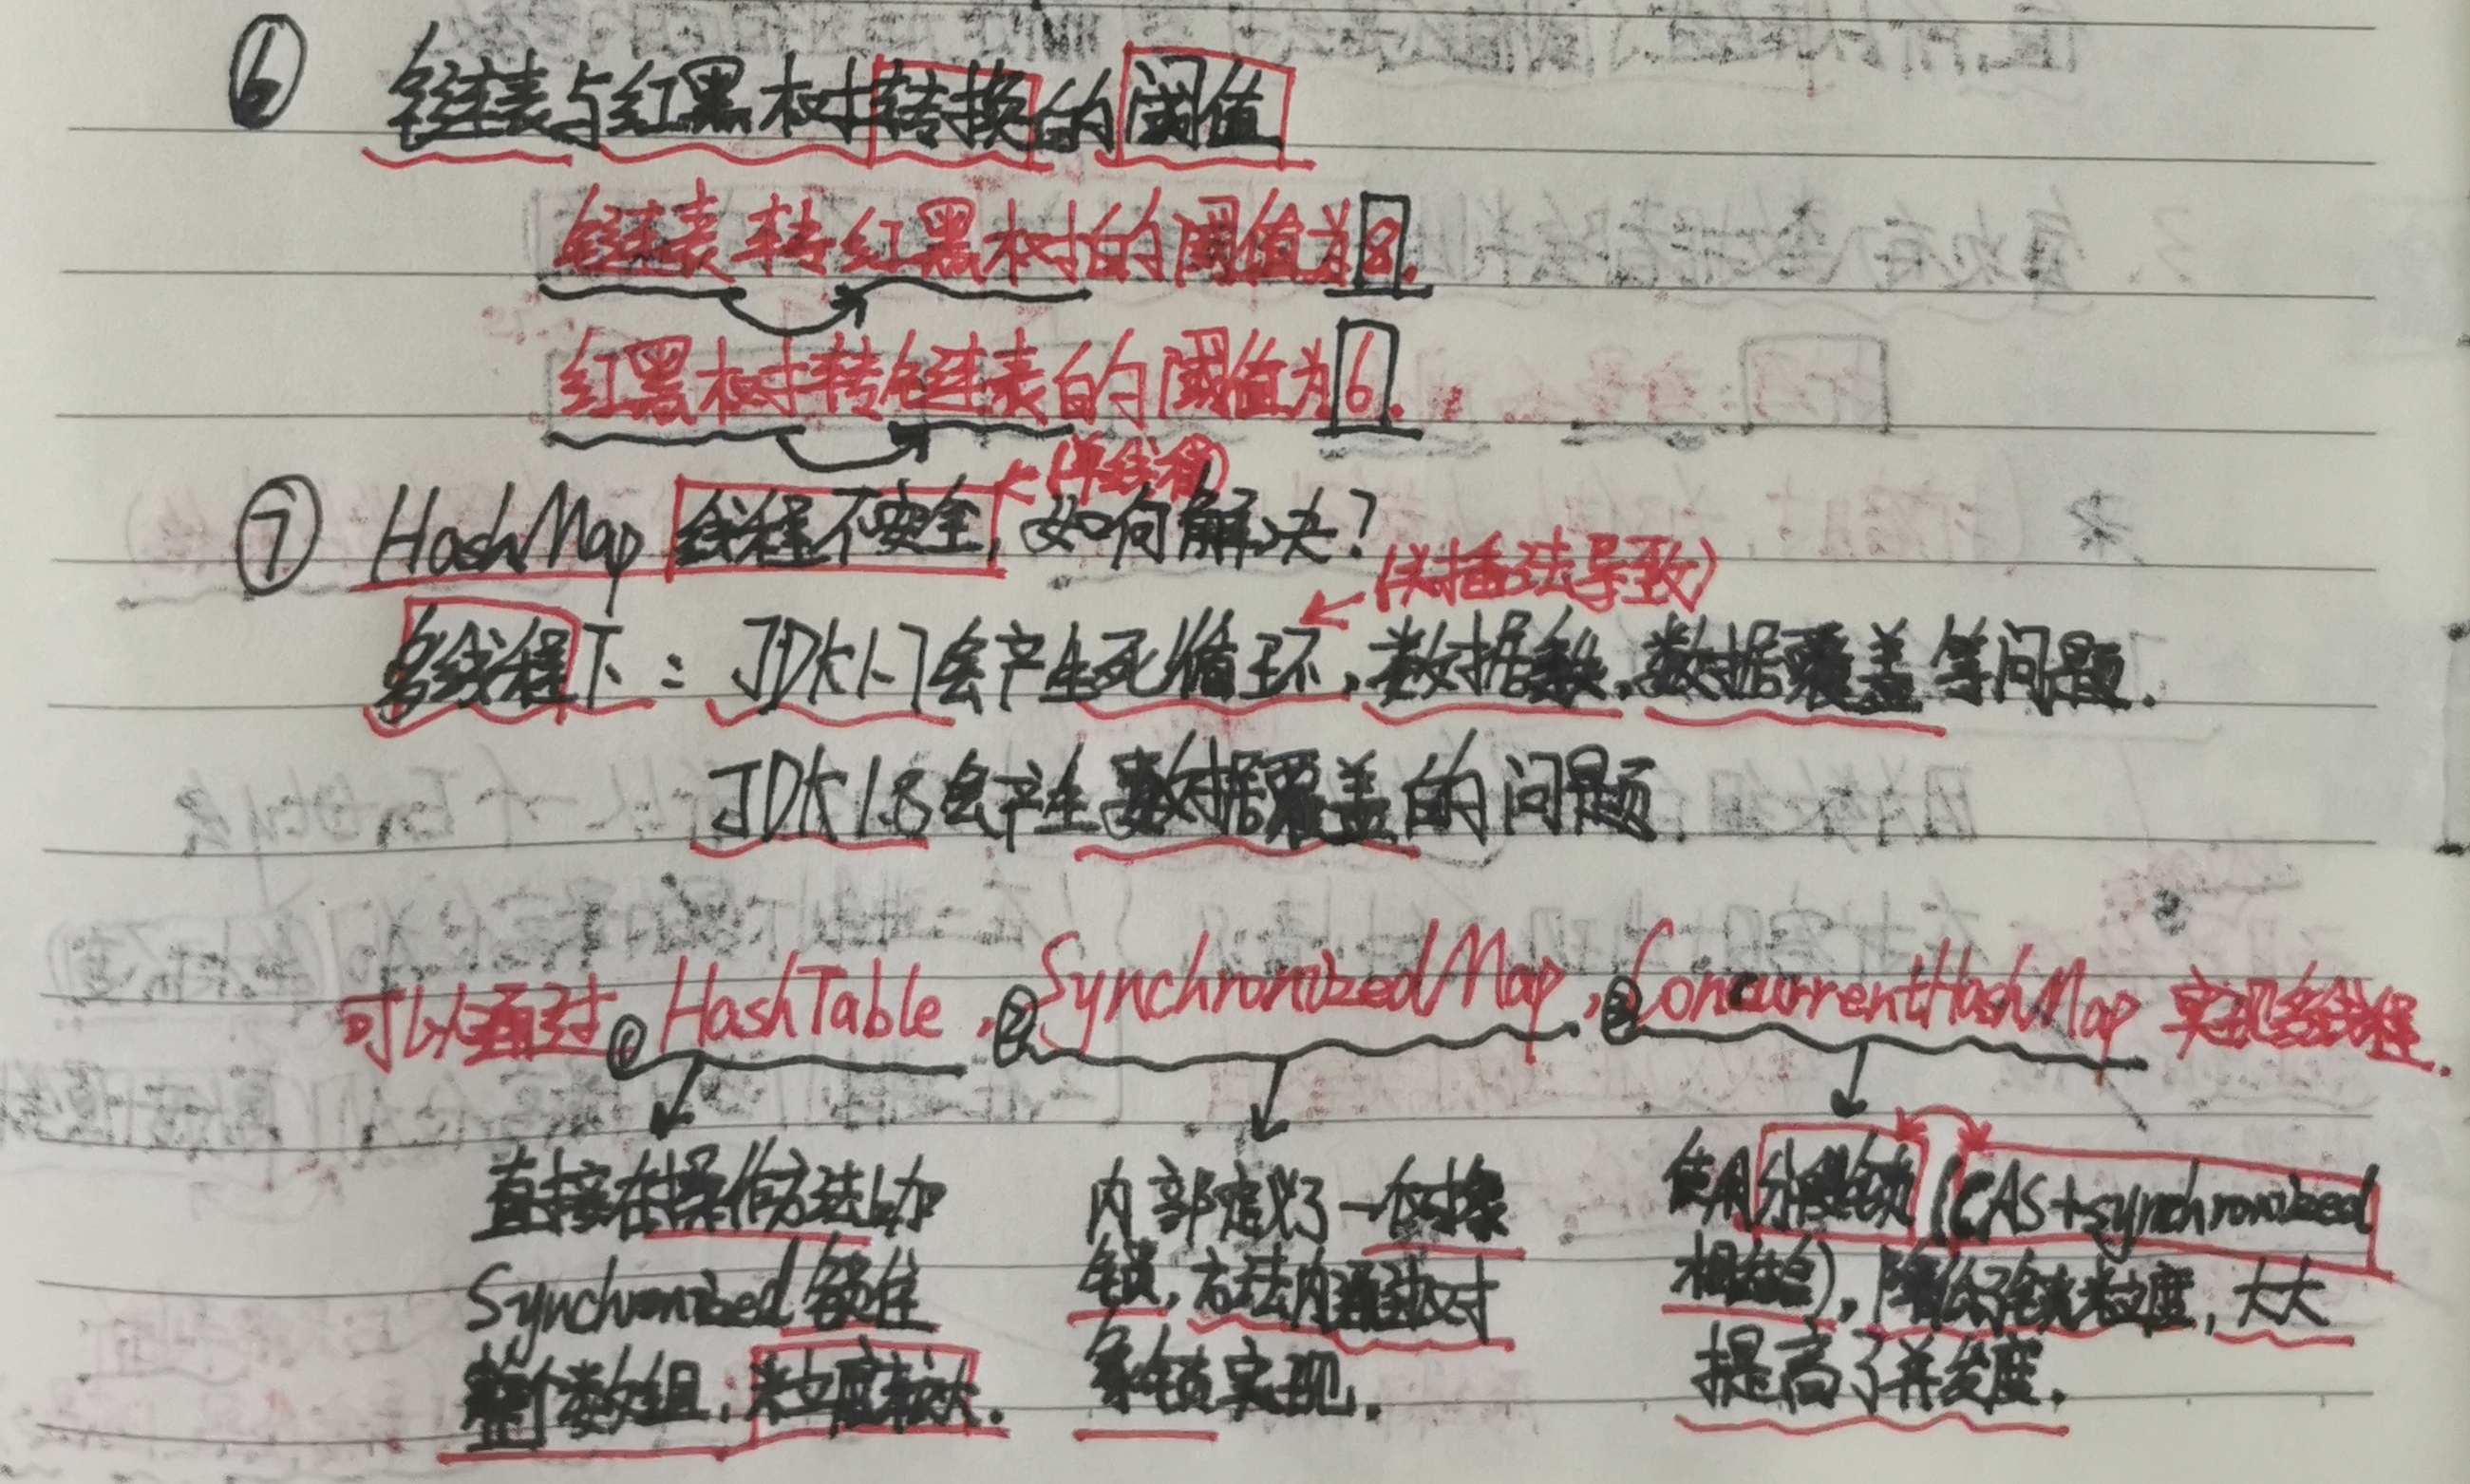 ⑥ 链表与红黑树转换的阈值
链表转红黑树的阈值为8.
红黑树转链表的阈值为6.
(单线程)
⑦ HashMap 线程不安全, 如何解决?
(头插法导致)
多线程下: JDK1.7会产生死循环, 数据丢失, 数据覆盖等问题.
JDK1.8会产生数据覆盖的问题
可以通过 ① HashTable, ② SynchronizedMap, ③ ConcurrentHashMap 实现多线程.
直接在操作方法上加 内部定义了一个对象 使用分段锁 (CAS+synchronized
Synchronized 锁住 锁, 方法内通过对 相结合), 降低了锁粒度, 大大
整个数组, 粒度较大. 象锁实现. 提高了并发度.